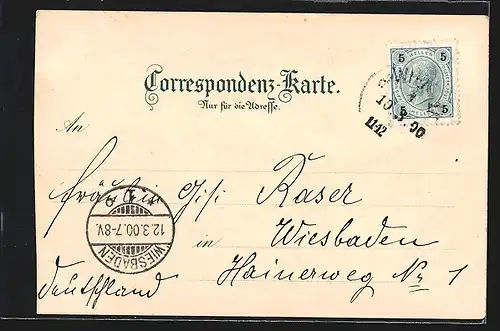 Correspondenz-Karte.
Nur für die Adresse.
5 HELLER 5
5 5
10 3 00
11-12
An
Fräulein Gisi Raser
in Wiesbaden
Hainerweg No 1
Deutschland
12.3.00.7-8V.
WIESBADEN